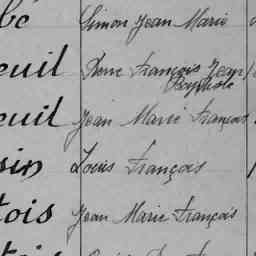 bé Simon Jean Marie
euil Pierre François Jean
Baptiste
euil Jean Marie François
sin Louis François
tois Jean Marie François